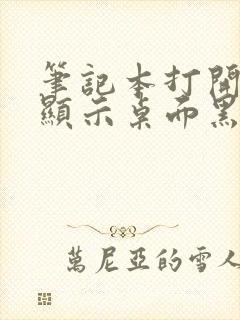 筆記本打開
顯示桌面黑
萬尼亞的雪人